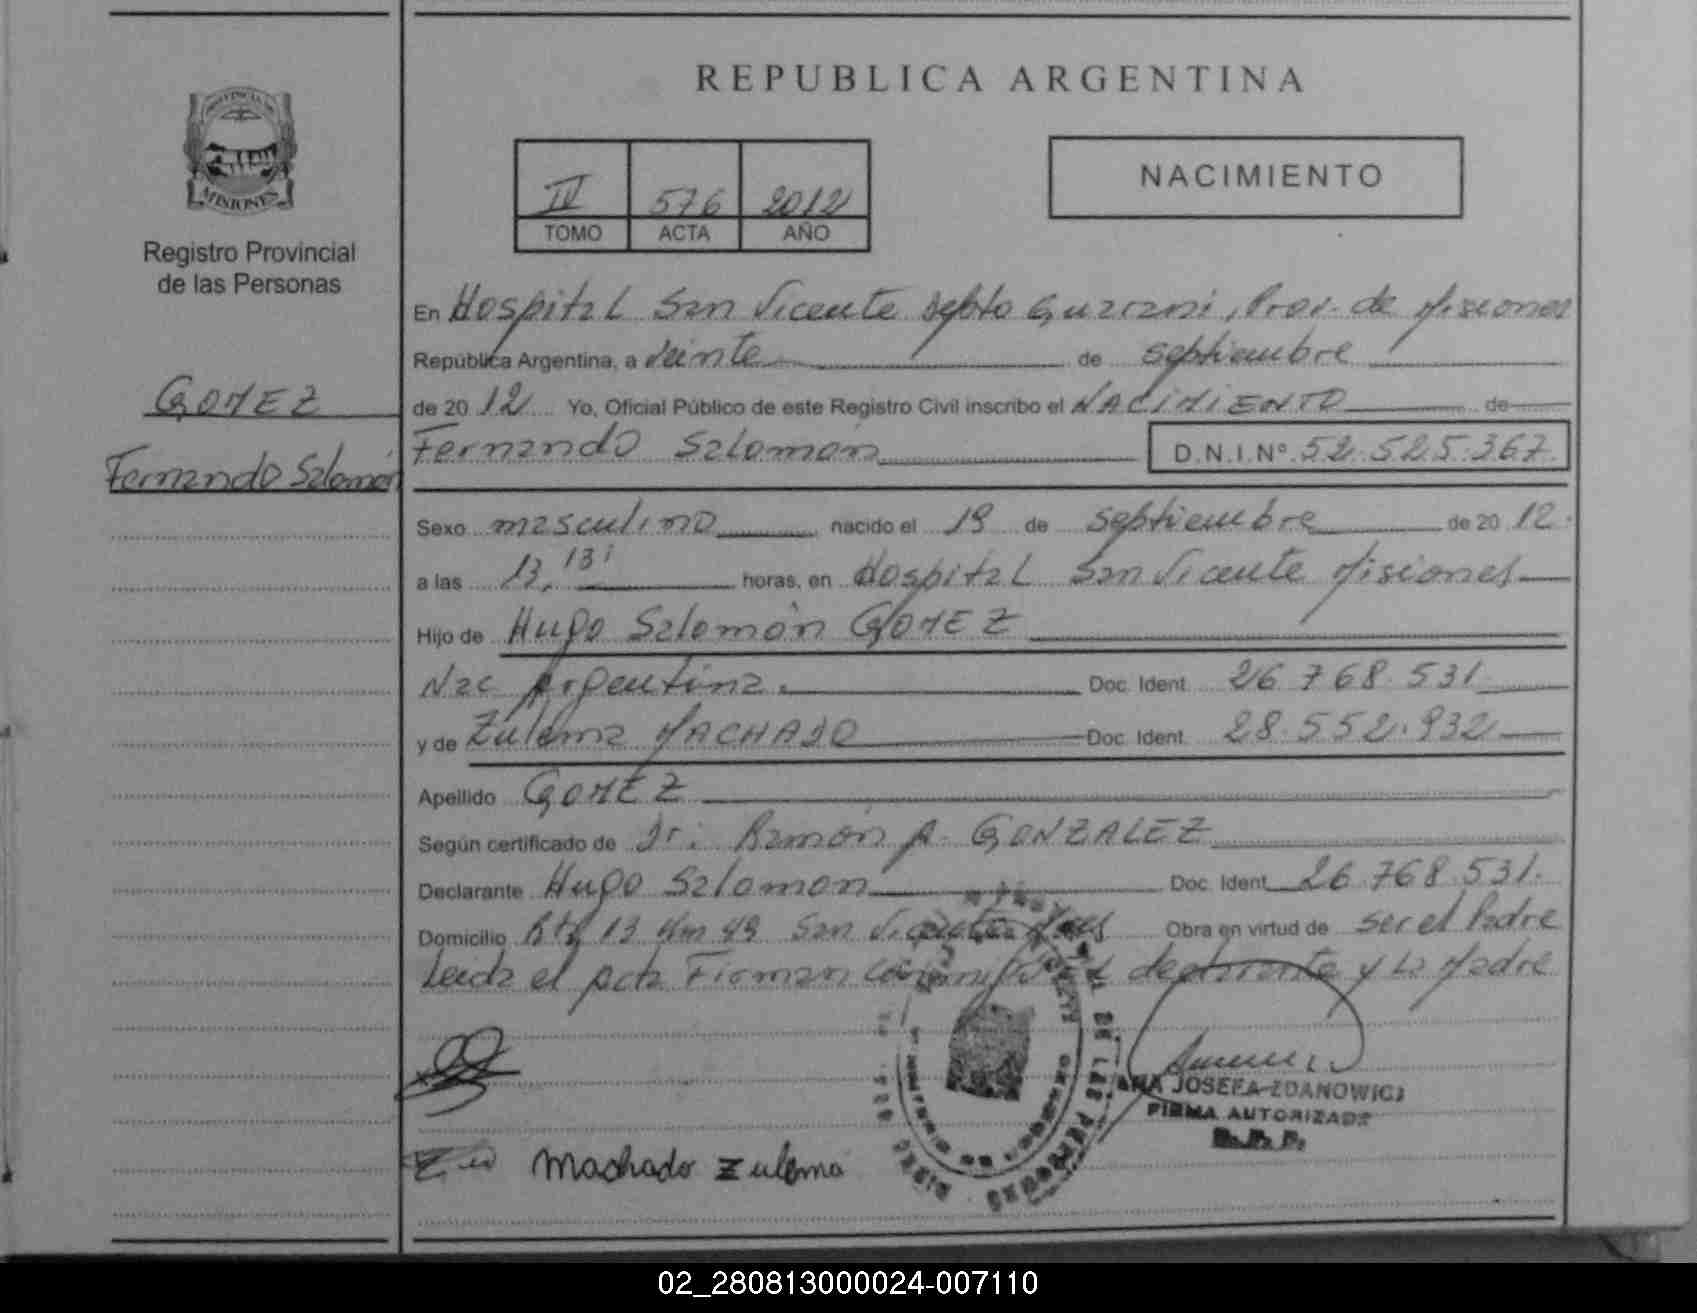 REPUBLICA ARGENTINA
PROVINCIA DE
MISIONES
Registro Provincial
de las Personas
IV 576 2012
TOMO ACTA AÑO
NACIMIENTO
GOMEZ
Fernando Salomón
En Hospital San Vicente Depto Guarani, Prov. de Misiones
República Argentina, a Veinte de Septiembre
de 2012 Yo, Oficial Público de este Registro Civil inscribo el NACIMIENTO de
Fernando Salomon D.N.I.Nº 52.525.367
Sexo masculino nacido el 19 de Septiembre de 2012.
a las 13,13' horas, en Hospital San Vicente Misiones
Hijo de Hugo Salomón GOMEZ
Nac Argentina. Doc. Ident. 26.768.531
y de Zulema MACHADO Doc. Ident. 28.552.932
Apellido GOMEZ
Según certificado de Dr. Ramón A. GONZALEZ
Declarante Hugo Salomon Doc. Ident. 26.768.531.
Domicilio Rta 13 Km 49 San Vicente Obra en virtud de ser el Padre
Leida el acta Firman declarante y La Madre
ANA JOSEFA ZDANOWICZ
FIRMA AUTORIZADA
R.P.P.
Machado Zulema
02_280813000024-007110